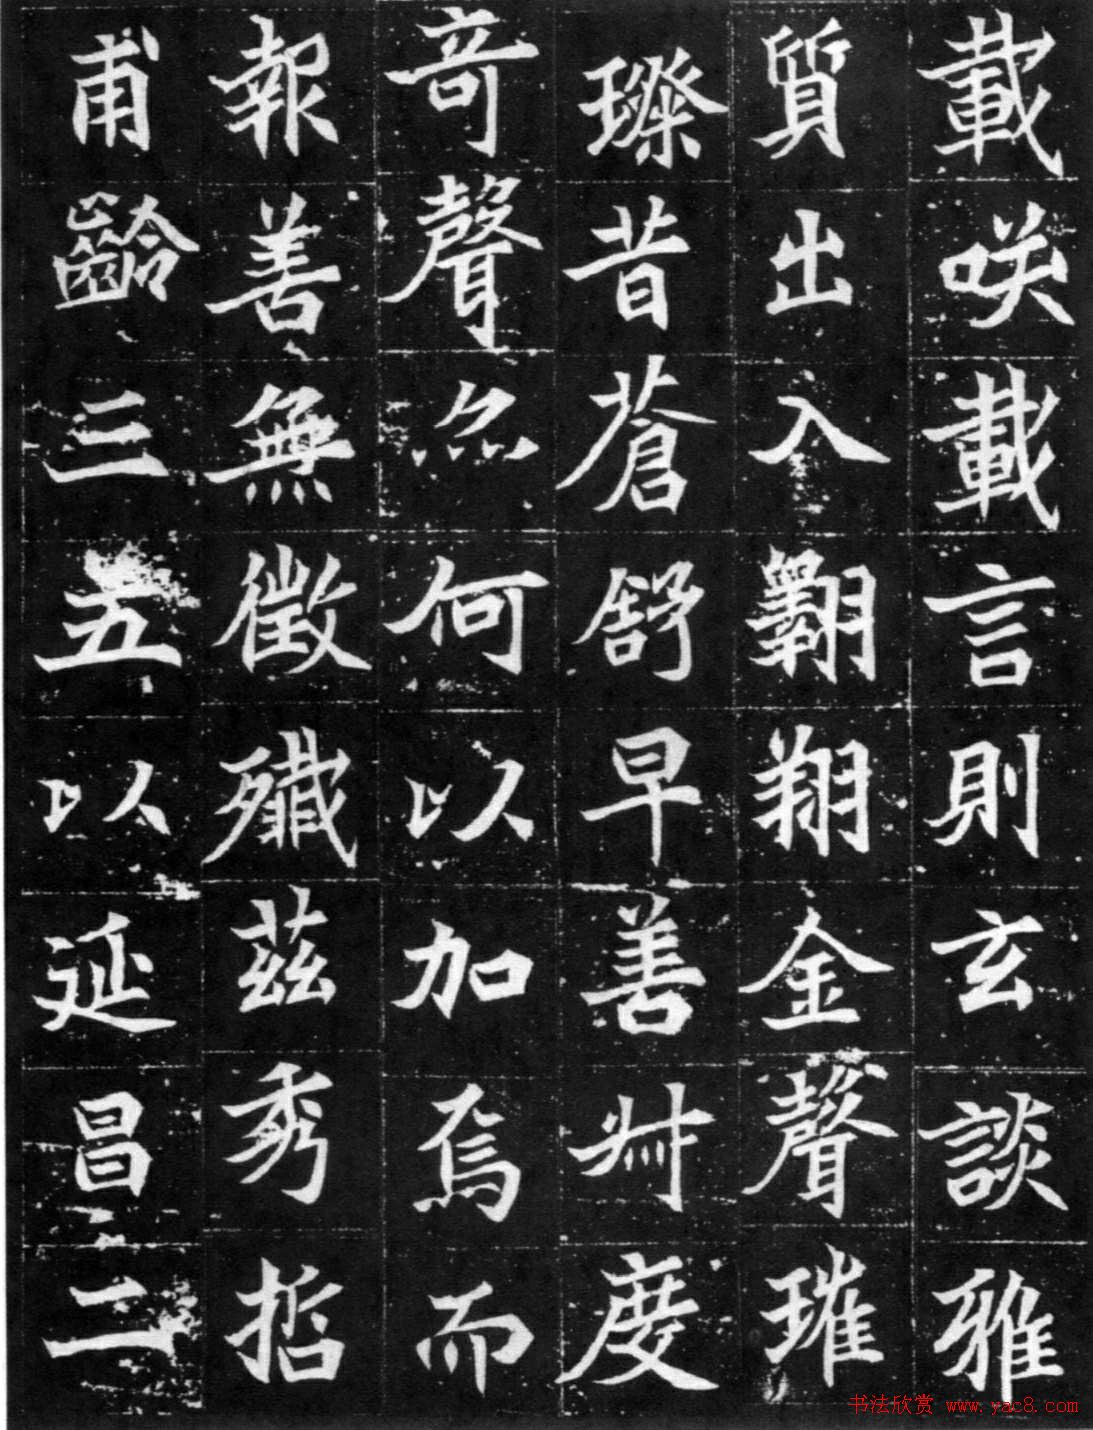 載咲載言則玄談雅
質出入翾翔金聲璀
璨昔蒼舒早善艸度
奇聲尒何以加焉而
報善無徵殱茲秀哲
甫齡三五以延昌二
书法欣赏 www.yac8.com